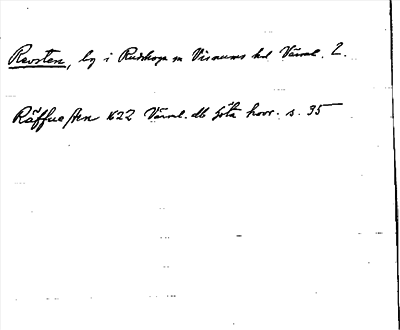 Revsten, by i Rudskoga sn Visnums hd Värml. l.
Räffuesten 1622 Värml. db Göta hovr. s. 35